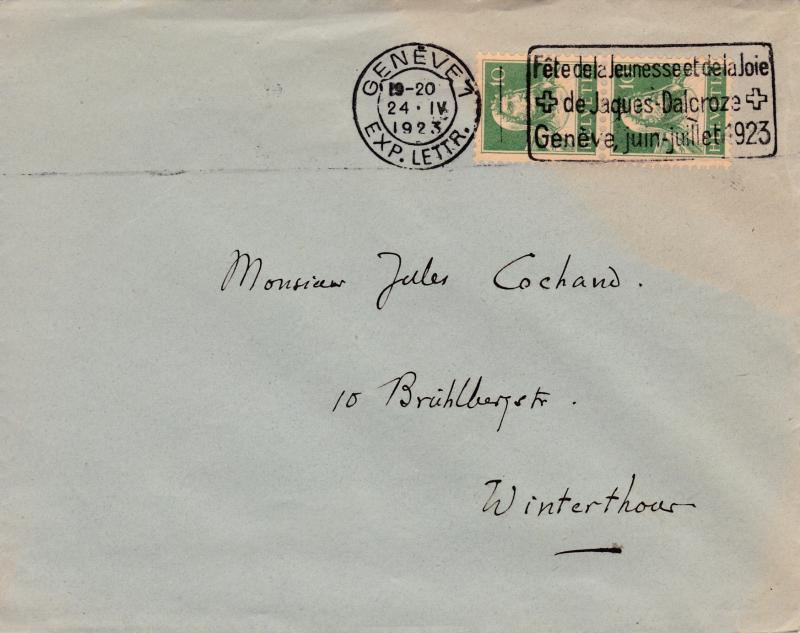 GENÈVE 1
19-20
24·IV
1923
EXP. LETTR.
10
HELVETIA
10
HELVETIA
Fête de la Jeunesse et de la Joie
de Jaques-Dalcroze
Genève, juin-juillet 1923
Monsieur Jules Cochand.
10 Brühlbergstr.
Winterthour